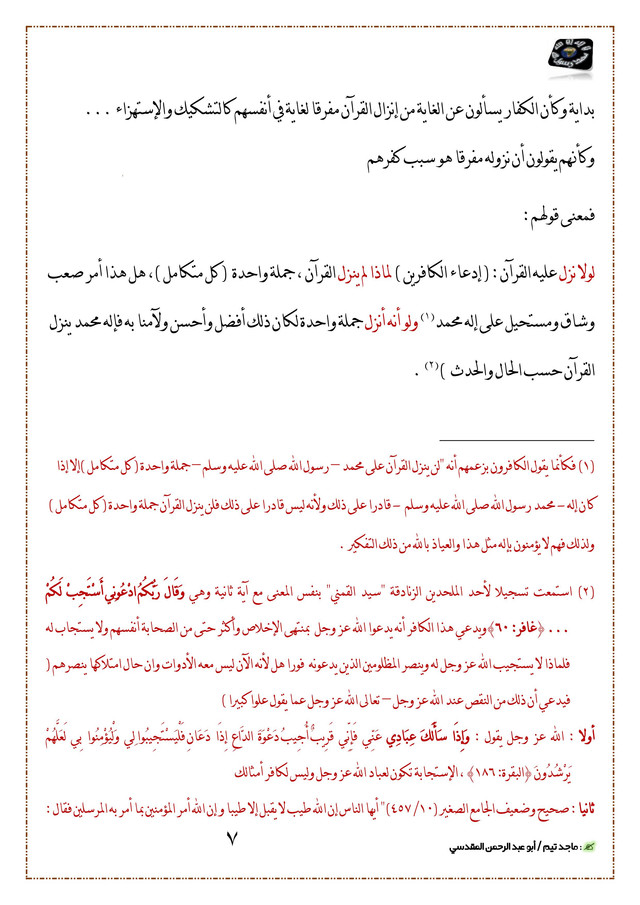 بداية وكأن الكفار يسألون عن الغاية من إنزال القرآن مفرقا لغاية في أنفسهم كالتشكيك والإستهزاء ...
وكأنهم يقولون أن نزوله مفرقا هو سبب كفرهم
فمعنى قولهم :
لولا نزل عليه القرآن : ( إدعاء الكافرين ) لماذا لم ينزل القرآن ، جملة واحدة ( كل متكامل ) ، هل هذا أمر صعب
وشاق ومستحيل على إله محمد (١) ولو أنه أنزل جملة واحدة لكان ذلك أفضل وأحسن ولآمنا به فإله محمد ينزل
القرآن حسب الحال والحدث ) (٢) .
(١) فكأنما يقول الكافرون بزعمهم أنه "لن ينزل القرآن على محمد – رسول الله صلى الله عليه وسلم – جملة واحدة ( كل متكامل ) إلا إذا
كان إله – محمد رسول الله صلى الله عليه وسلم – قادرا على ذلك ولأنه ليس قادرا على ذلك فلن ينزل القرآن جملة واحدة ( كل متكامل )
ولذلك فهم لا يؤمنون بإله مثل هذا والعياذ بالله من ذلك التفكير .
(٢) استمعت تسجيلا لأحد الملحدين الزنادقة "سيد القمني" بنفس المعنى مع آية ثانية وهي وَقَالَ رَبُّكُمُ ادْعُونِي أَسْتَجِبْ لَكُمْ
... ﴿غافر: ٦٠﴾ ويدعي هذا الكافر أنه يدعوا الله عز وجل بمنتهى الإخلاص وأكثر حتى من الصحابة أنفسهم ولا يستجاب له
فلماذا لا يستجيب الله عز وجل له وينصر المظلومين الذين يدعونه فورا هل لأنه الآن ليس معه الأدوات وان حال امتلاكها ينصرهم (
فيدعي أن ذلك من النقص عند الله عز وجل – تعالى الله عز وجل عما يقول علوا كبيرا )
أولا : الله عز وجل يقول : وَإِذَا سَأَلَكَ عِبَادِي عَنِّي فَإِنِّي قَرِيبٌ أُجِيبُ دَعْوَةَ الدَّاعِ إِذَا دَعَانِ فَلْيَسْتَجِيبُوا لِي وَلْيُؤْمِنُوا بِي لَعَلَّهُمْ
يَرْشُدُونَ ﴿البقرة: ١٨٦﴾ ، الإستجابة تكون لعباد الله عز وجل وليس لكافر أمثالك
ثانيا : صحيح وضعيف الجامع الصغير (١٠/ ٤٥٧) " أيها الناس إن الله طيب لا يقبل إلا طيبا و إن الله أمر المؤمنين بما أمر به المرسلين فقال :
٧
: ماجد تيم / أبو عبد الرحمن المقدسي